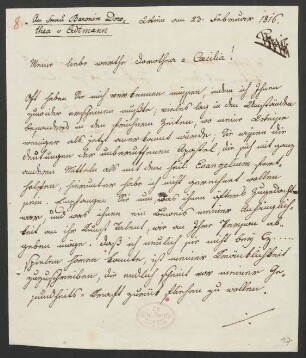 8. An Frau Baronin Doro-
thea v. Ertmann
Wien am 23. Februar 1816.
Meine liebe werthe Dorothea = Cäcilia!
Oft haben Sie mich verkennen müssen, indem ich Ihnen
zuwider erscheinen mußte, vieles lag in den Umständen
besonders in den früheren Zeiten, wo meine Weise
weniger als jetzt anerkannt wurde. Sie wissen die
Deutungen der unberufenen Apostel, die sich mit ganz
andern Mitteln als mit dem heil. Evangelium fort
helfen, hierunter habe ich nicht gerechnet wollen
seyn. Empfangen Sie nun was Ihnen öfters zugedacht
war, und was Ihnen einen Beweis meiner Anhänglich-
keit an Ihr Kunst Talent, wie an Ihre Person ab-
geben möge. Daß ich neulich Sie nicht bey Cz....
spielen hören konnte, ist meiner Kränklichkeit
zuzuschreiben, die endlich scheint vor meiner Ge-
sundheits=Kraft zurück fliehen zu wollen.